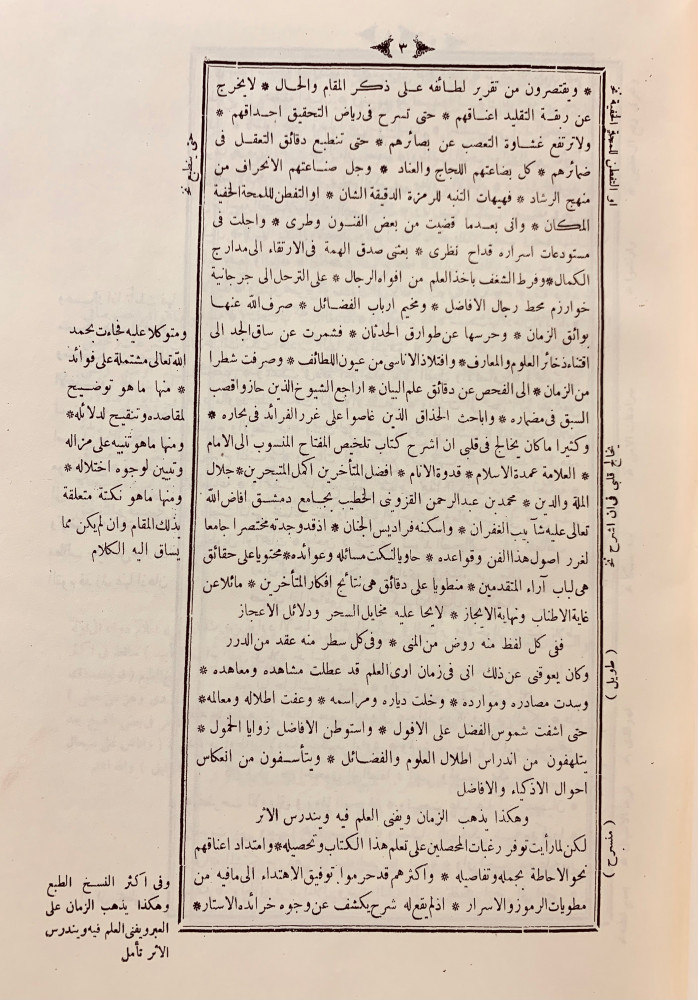 ٣
* ويقتصرون من تقرير لطائفه على ذكر المقام والحال * لايخرج
عن ربقة التقليد اعناقهم * حتى تسرح فى رياض التحقيق احداقهم *
ولاترتفع غشاوة التعصب عن بصائرهم * حتى تنطبع دقائق التعقل فى
ضمائرهم * كل بضاعتهم اللجاج والعناد * وجل صناعتهم الانحراف من
منهج الرشاد * فهيهات التنبه للرمزة الدقيقة الشان * اوالتفطن للمحة الخفية
المكان * وانى بعدما قضيت من بعض الفنون وطرى * واجلت فى
مستودعات اسراره قداح نظرى * بعثنى صدق الهمة فى الارتقاء الى مدارج
الكمال * وفرط الشغف باخذ العلم من افواه الرجال * على الترحل الى جرجانية
خوارزم محط رجال الافاضل * ومخيم ارباب الفضائل * صرف الله عنها
بوائق الزمان * وحرسها عن طوارق الحدثان * فشمرت عن ساق الجد الى
اقتناء ذخائر العلوم والمعارف * وافتلاذ الاناسى من عيون اللطائف * وصرفت شطرا
من الزمان * الى الفحص عن دقائق علم البيان * اراجع الشيوخ الذين حازوا قصب
السبق فى مضماره * واباحث الحذاق الذين غاصوا على غرر الفرائد فى بحاره *
وكثيرا ماكان يخالج فى قلبى ان اشرح كتاب تلخيص المفتاح المنسوب الى الامام
* العلامة عمدة الاسلام * قدوة الانام * افضل المتأخرين اكمل المتبحرين * جلال
الملة والدين * محمد بن عبدالرحمن القزونى الخطيب بجامع دمشق افاض الله
تعالى عليه شآبيب الغفران * واسكنه فراديس الجنان * اذ قد وجدته مختصرا جامعا
لغرر اصول هذا الفن وقواعده * حاويا لنكت مسائله وعوائده * محتويا على حقائق
هى لباب آراء المتقدمين * منطويا على دقائق هى نتايج افكار المتأخرين * مائلا عن
غاية الاطناب ونهاية الايجاز * لايحا عليه مخايل السحر ودلائل الاعجاز
ففى كل لفظ منه روض من المنى * وفى كل سطر منه عقد من الدرر
وكان يعوقنى عن ذلك انى فى زمان ارى العلم قد عطلت مشاهده ومعاهده *
وسدت مصادره وموارده * وخلت دياره ومراسمه * وعفت اطلاله ومعالمه *
حتى اشفت شموس الفضل على الافول * واستوطن الافاضل زوايا الخمول *
يتلهفون من اندراس اطلال العلوم والفضائل * ويتأسفون من انعكاس
احوال الاذكياء والافاضل
وهكذا يذهب الزمان ويفنى العلم فيه ويندرس الاثر
لكن لما رأيت توفر رغبات المحصلين على تعلم هذا الكتاب وتحصيله * وامتداد اعناقهم
نحو الاحاطة بجمله وتفاصيله * واكثرهم قد حرموا توفيق الاهتداء الى مافيه من
مطويات الرموز والاسرار * اذ لم يقع له شرح يكشف عن وجوه خرائده الاستار *
او التفطن للمحة الخفية نخ
يخالج قلبى فى ان اشرح نخ
( طويل )
( منسرح )
حتى ينطبع نخ
ومتوكلا عليه فجاءت بحمد
الله تعالى مشتملة على فوائد
* منها ما هو توضيح
لمقاصده وتنقيح لدلائله *
ومنها ما هو تنبيه على مزاله
وتبيين لوجوه اختلاله *
ومنها ما هو نكتة متعلقة
بذلك المقام وان لم يكن مما
يساق اليه الكلام
وفى اكثر النسخ الطبع
وهكذا يذهب الزمان على
العبر ويفنى العلم فيه ويندرس
الاثر تأمل